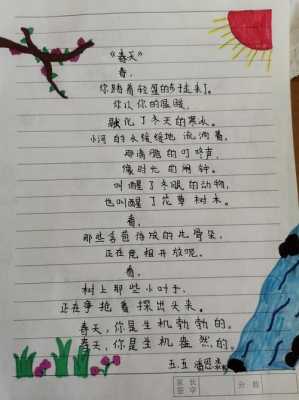 《春天》
春，
你踏着轻盈的步走来了。
你以你的温暖，
融化了冬天的寒冰。
小河的水缓缓地流淌着，
那清脆的叮咚声，
像时光的闹钟。
叫醒了冬眠的动物，
也叫醒了花草树木。
看，
那些含苞待放的花骨朵，
正在竞相开放呢。
看，
树上那些小叶子，
正在争抢着探出头来。
春天，你是生机勃勃的。
春天，你是生机盎然的。
五.五 潘恩
家长
签字
分数